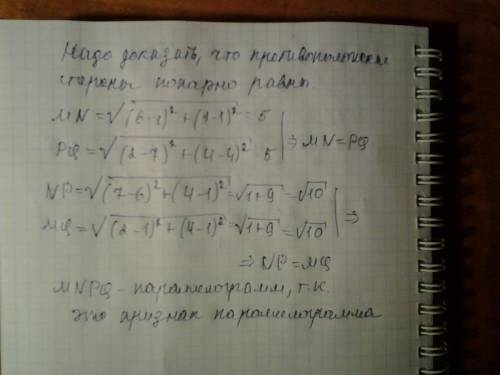 Надо доказать, что противоположные
стороны попарно равны.
MN = √(6-1)² + (1-1)² = 5
PQ = √(2-7)² + (4-4)² = 5 ⇒ MN = PQ
NP = √(7-6)² + (4-1)² = √1+9 = √10
MQ = √(2-1)² + (4-1)² = √1+9 = √10 ⇒
⇒ NP = MQ
MNPQ - параллелограмм, т.к.
это признак параллелограмма